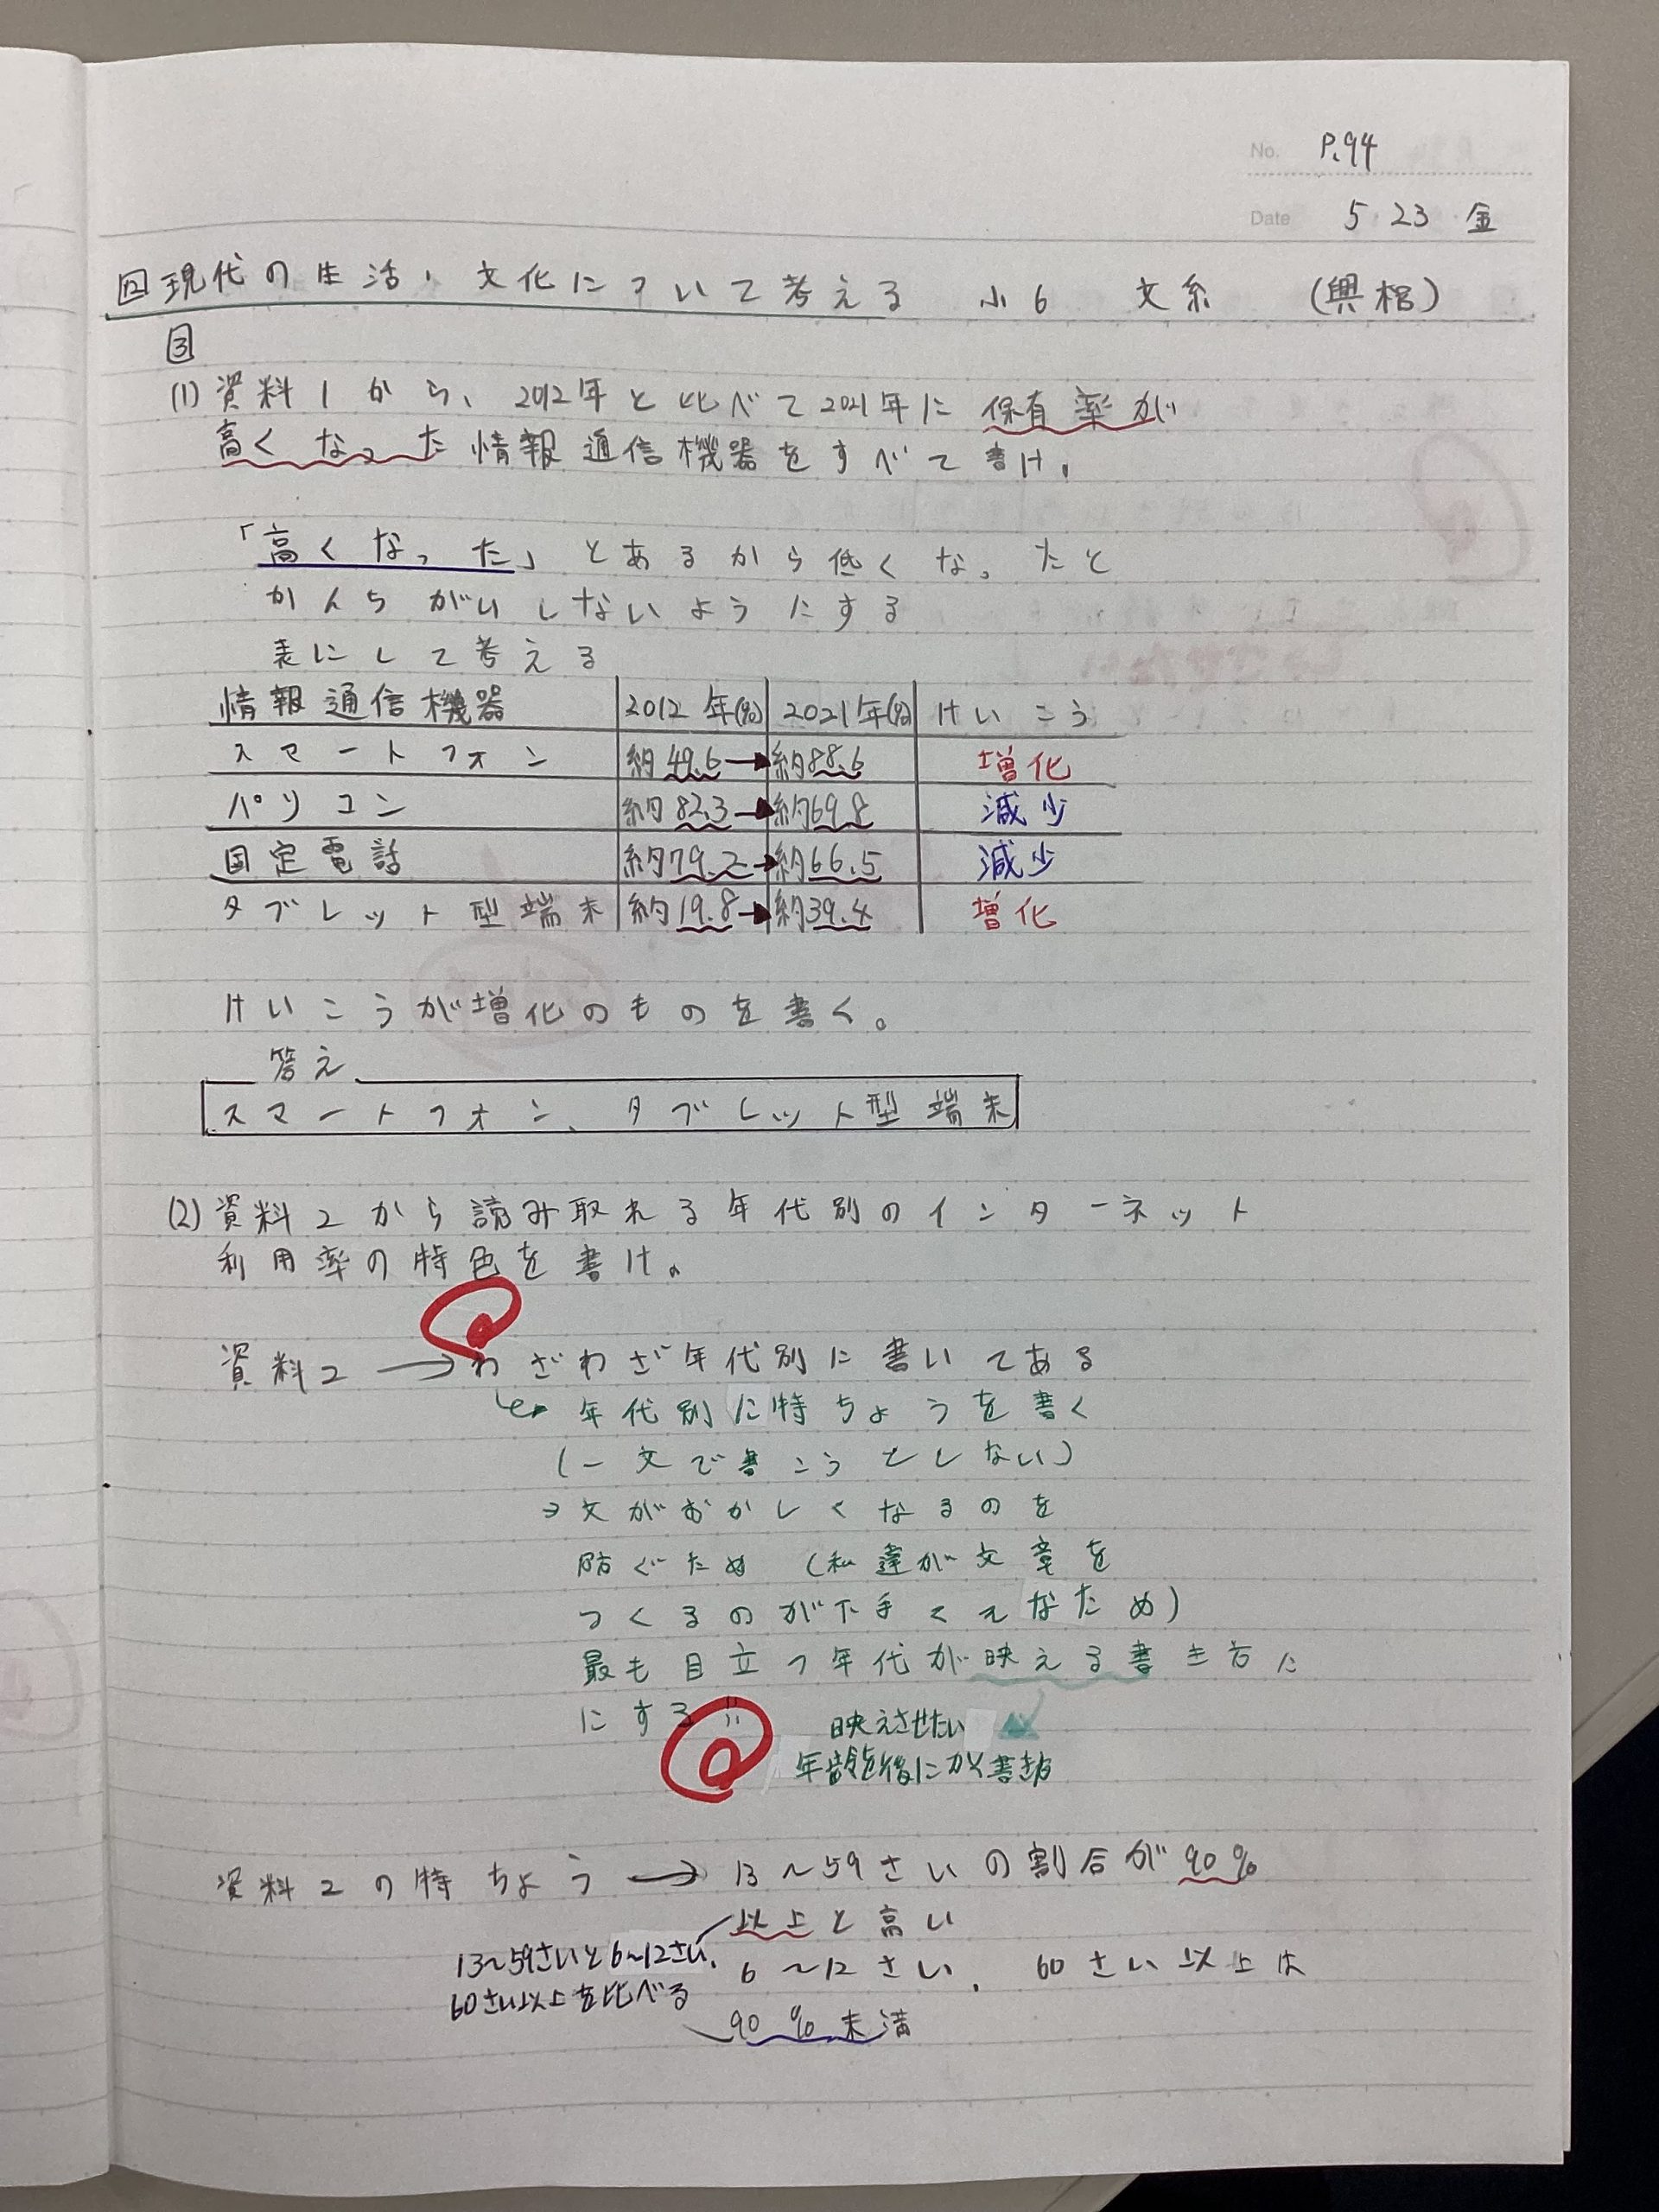 No. P.94
Date 5 23 金
12 現代の生活・文化について考える 小6 文系
3
(1) 資料1から、2012年と比べて2021年に保有率が
高くなった情報通信機器をすべて書け。
「高くなった」とあるから低くなったと
かんちがいしないようにする
表にして考える
情報通信機器 2012年(%) 2021年(%) けいこう
スマートフォン 約49.6→約88.6 増化
パソコン 約82.3→約69.8 減少
固定電話 約79.2→約66.5 減少
タブレット型端末 約19.8→約39.4 増化
けいこうが増化のものを書く。
答え
スマートフォン、タブレット型端末
(2) 資料2から読み取れる年代別のインターネット
利用率の特色を書け。
資料2 → わざわざ年代別に書いてある
年代別に特ちょうを書く
(一文で書こうとしない)
→文がおかしくなるのを
防ぐため (私達が文章を
つくるのが下手くそなため)
最も目立つ年代が映える書き方に
にする
映えさせたい
年齢を後にかく書き方
資料2の特ちょう → 13〜59さいの割合が90%
以上と高い
13〜59さいと6〜12さい、
60さい以上を比べる
6〜12さい、60さい以上は
90%未満